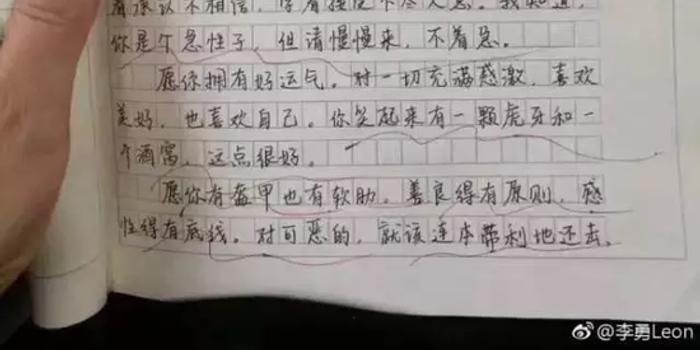 你是个急性子，但请慢慢来，不着急。
愿你拥有好运气。对一切充满感激，喜欢
美好，也喜欢自己。你笑起来有一颗虎牙和一
个酒窝，这点很好。
愿你有盔甲也有软肋。善良得有原则，感
性得有底线。对可恶的，就该连本带利地还去。
@李勇Leon